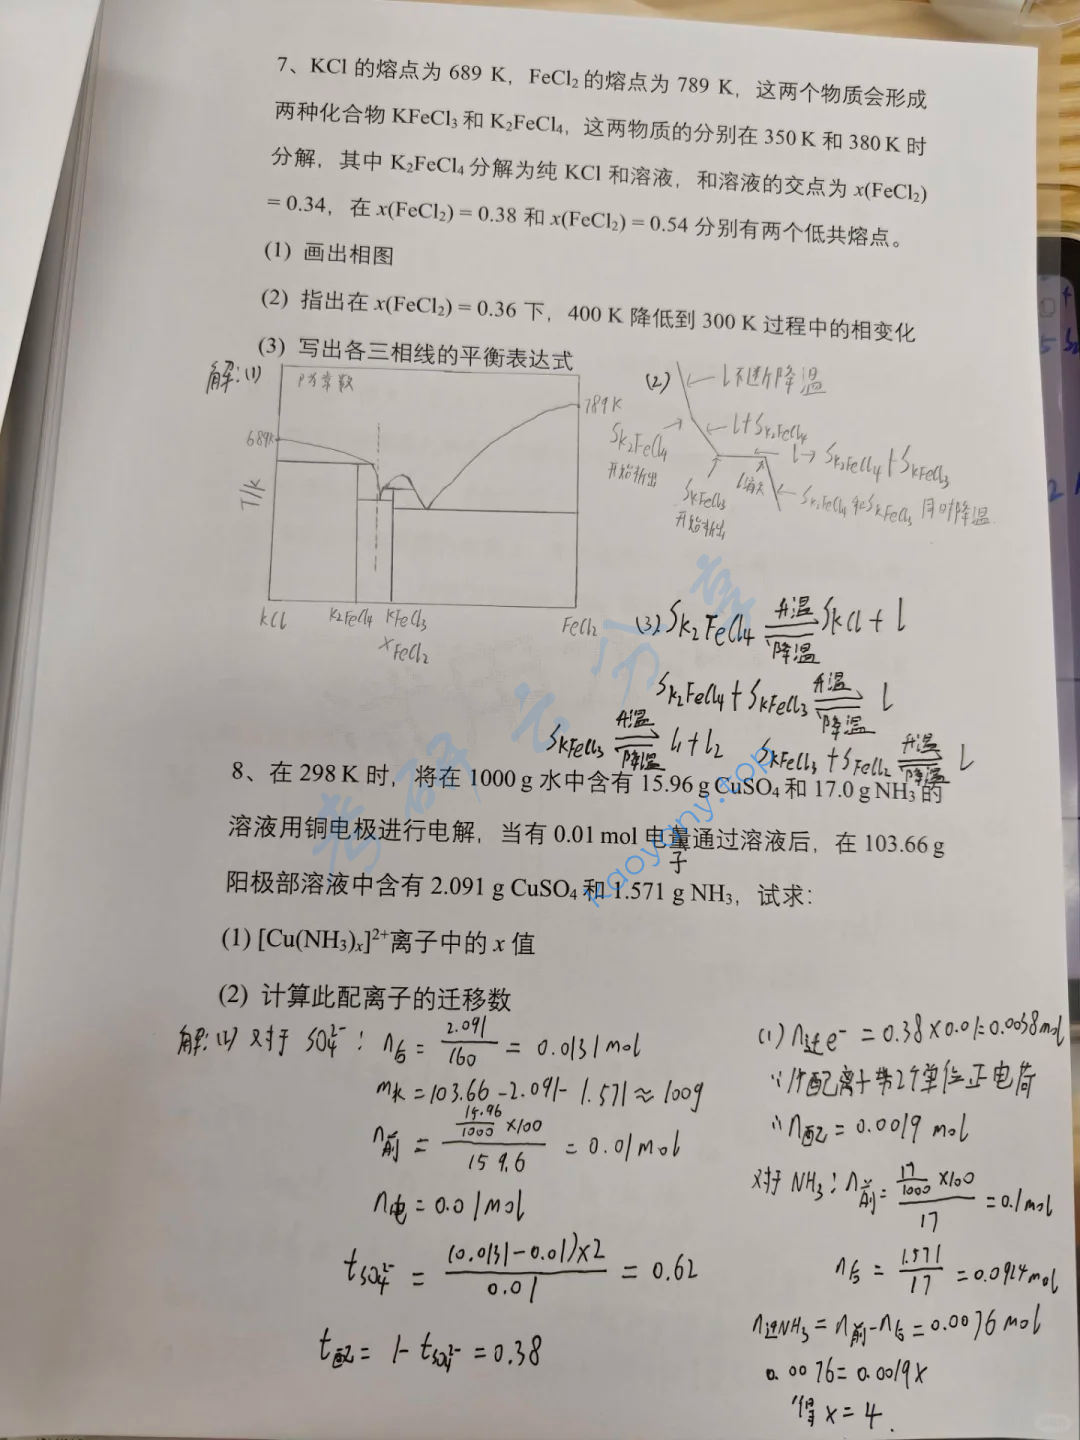 7、KCl 的熔点为 689 K，FeCl₂ 的熔点为 789 K，这两个物质会形成
两种化合物 KFeCl₃ 和 K₂FeCl₄，这两物质的分别在 350 K 和 380 K 时
分解，其中 K₂FeCl₄ 分解为纯 KCl 和溶液，和溶液的交点为 x(FeCl₂)
= 0.34，在 x(FeCl₂) = 0.38 和 x(FeCl₂) = 0.54 分别有两个低共熔点。
(1) 画出相图
(2) 指出在 x(FeCl₂) = 0.36 下，400 K 降低到 300 K 过程中的相变化
(3) 写出各三相线的平衡表达式
解:(1)
689K
789K
T/K
KCl
K₂FeCl₄
KFeCl₃
FeCl₂
xFeCl₂
(2)
l不断降温
l+S_K₂FeCl₄
S_K₂FeCl₄
开始析出
l→S_K₂FeCl₄+S_KFeCl₃
S_KFeCl₃
开始析出
l消失
S_K₂FeCl₄和S_KFeCl₃同时降温
(3) S_K₂FeCl₄ ⇌ 升温 降温 S_KCl + l
S_K₂FeCl₄ + S_KFeCl₃ ⇌ 升温 降温 l
S_KFeCl₃ ⇌ 升温 降温 l₁+l₂
S_KFeCl₃ + S_FeCl₂ ⇌ 升温 降温 l
8、在 298 K 时，将在 1000 g 水中含有 15.96 g CuSO₄ 和 17.0 g NH₃ 的
溶液用铜电极进行电解，当有 0.01 mol 电量通过溶液后，在 103.66 g
子
阳极部溶液中含有 2.091 g CuSO₄ 和 1.571 g NH₃，试求：
(1) [Cu(NH₃)ₓ]²⁺离子中的 x 值
(2) 计算此配离子的迁移数
解:(2) 对于 SO₄²⁻: n后 = 2.091/160 = 0.0131 mol
m水 = 103.66 - 2.091 - 1.571 ≈ 100g
n前 = (15.96/1000 ×100)/159.6 = 0.01 mol
n电 = 0.01 mol
t_SO₄²⁻ = (0.0131-0.01)×2/0.01 = 0.62
t配 = 1 - t_SO₄²⁻ = 0.38
(1) n迁e⁻ = 0.38×0.01=0.0038mol
∵1个配离子带2个单位正电荷
∴n配 = 0.0019 mol
对于NH₃: n前 = (17/1000 ×100)/17 = 0.1mol
n后 = 1.571/17 = 0.0924mol
n迁NH₃ = n前-n后 = 0.0076 mol
0.0076 = 0.0019x
得 x = 4.
考研云分享
kaoyany.top